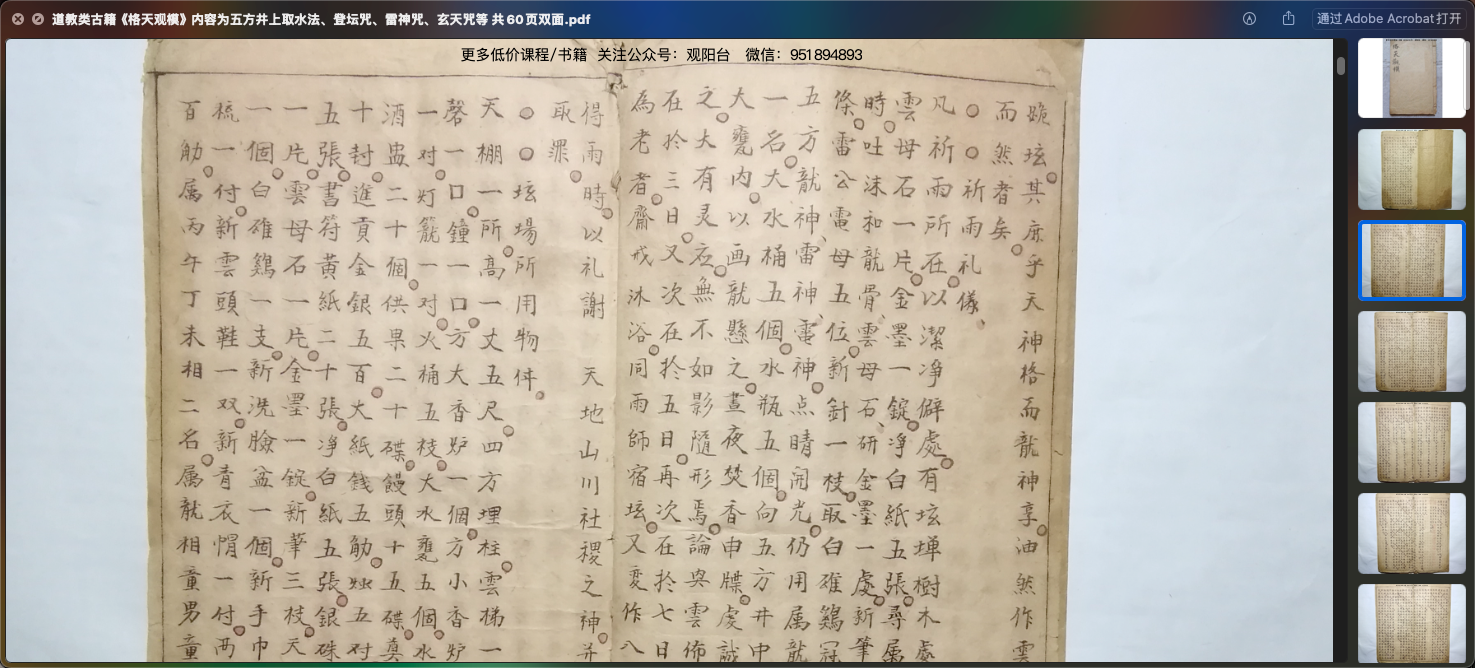 道教类古籍《格天观模》内容为五方井上取水法、登坛咒、雷神咒、玄天咒等 共60页双面.pdf
通过Adobe Acrobat打开
更多低价课程/书籍 关注公众号：观阳台 微信：951894893
跪坛其庶乎天神格而龍神享油然作雲
而然者矣
○○祈雨礼儀
凡祈雨所在以潔净僻處有坛墠樹木處
雲母石一片金墨一錠净白紙五張尋属
時吐沫和龍骨雲母石研金墨一處新筆
條雷公電母五位新針一枝取白雄鷄冠
五方龍神雷神電神点睛開光仍用属龍
一名大水桶五個水瓶五個向五方井中
大甕内以画龍懸之晝夜焚香申牒虔誠
之大有灵应無不如影隨形焉論與雲佈
在於三日又次在於五日再次在於七日
為老者齋戒沐浴同雨師宿坛又変作八
得雨時以礼謝 天地山川社稷之神并
取罪
○○坛場所用物件
天棚一所高一丈五尺四方埋柱雲梯一
磬一口鐘一口方大香炉一個方小香炉
一对灯籠一对火桶五枝大水甕五個水
酒盅二十個供果二十碟饅頭十五碟奠
十封進貢金銀五百大紙錢五觔炏五对
五張書符黄紙二十張净白紙五張銀硃
一片雲母石一片金墨一錠新筆三枝天
一個白雄鷄一支新洗臉盆一個新手巾
梳一付新雲頭鞋一双新青衣帽一付両
百觔属丙午丁未相二名属龍相童男童